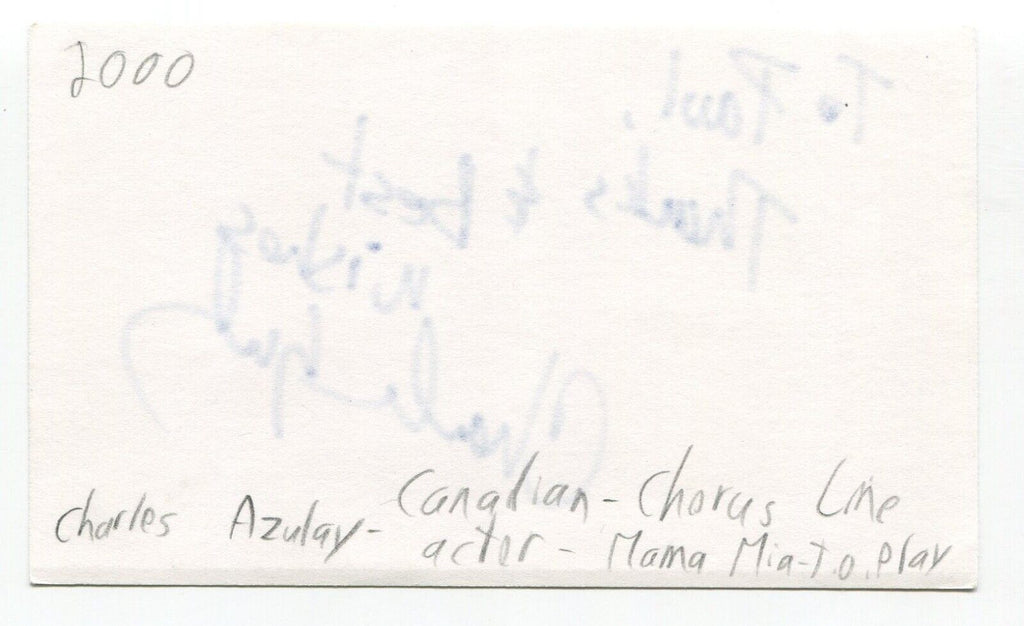 2000
To Paul,
Thanks & best
wishes
Charles Azulay
Canadian - Chorus Line
Charles Azulay - actor - Mama Mia - T.O. Play